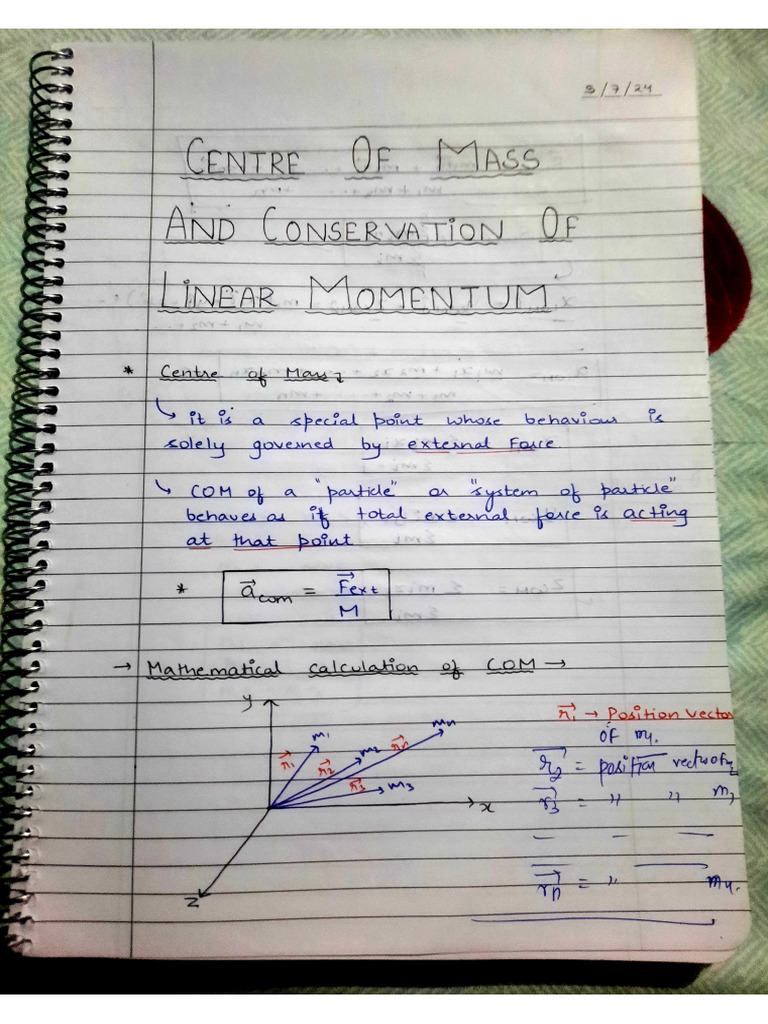 3/7/24
CENTRE OF MASS
AND CONSERVATION OF
LINEAR MOMENTUM
* Centre of Mass
↳ it is a special point whose behaviour is
solely governed by external Force
↳ COM of a "particle" or "system of particle"
behaves as if total external force is acting
at that point
* a⃗com = F⃗ext / M
→ Mathematical calculation of COM →
y
m1
m2
mn
r⃗1
r⃗2
r⃗n
r⃗3
m3
x
z
r⃗1 → Position vector
of m1.
r⃗2 = position vector of m2
r⃗3 = " " m3
— — —
r⃗n = "